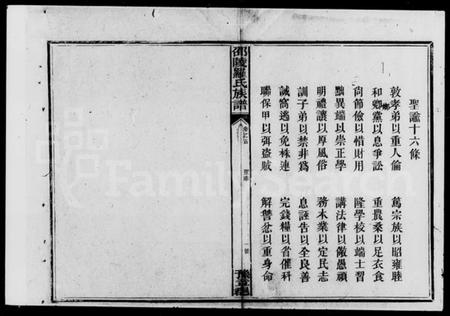 聖諭十六條
敦孝弟以重人倫　篤宗族以昭雍睦
和鄉黨以息爭訟　重農桑以足衣食
尚節儉以惜財用　隆學校以端士習
黜異端以崇正學　講法律以儆愚頑
明禮讓以厚風俗　務本業以定民志
訓子弟以禁非為　息誣告以全良善
誡窩逃以免株連　完錢糧以省催科
聯保甲以弭盜賊　解讐忿以重身命
邵陵羅氏族譜
FamilySearch